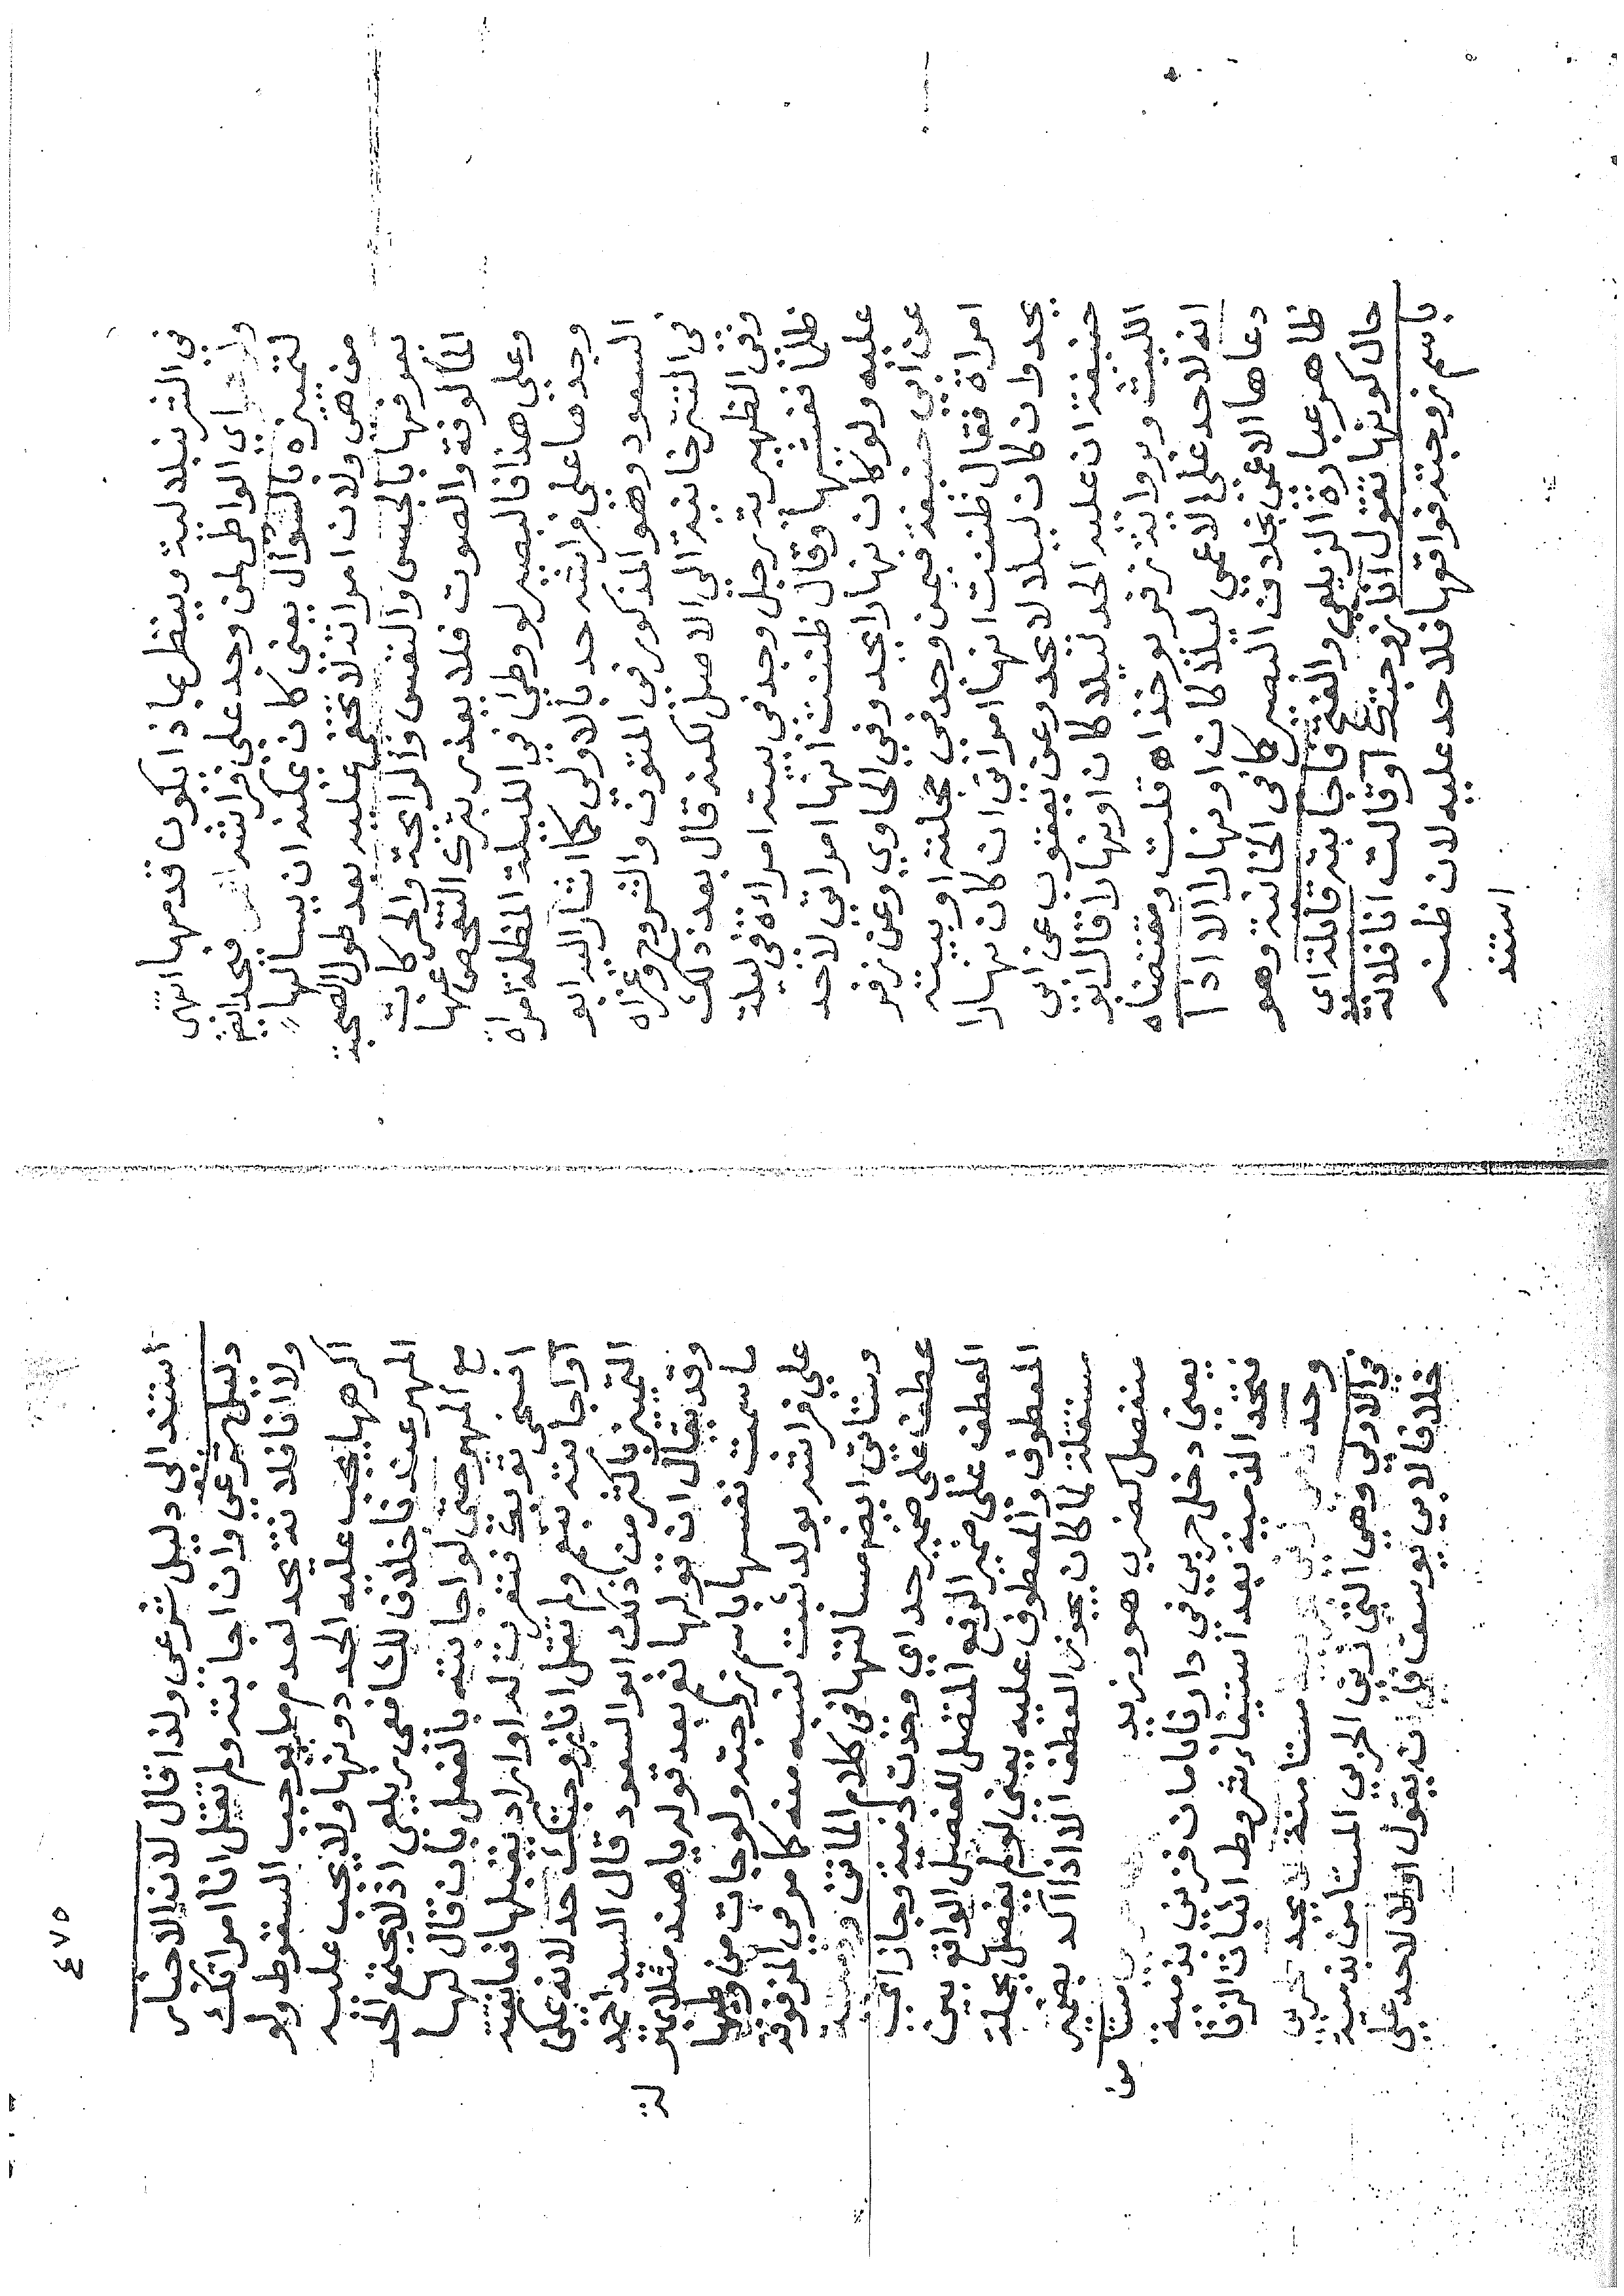 في الشرنبلالية وينظر بماذا يكون قدمها انتهى
ولو هي اي الواطي لمن وجد على فراشه فيحد ايضا
لتميزه بالسؤال يعني كان يمكنه ان يسالها
من هي ولان امراته لا تخفى عليه بعد طول الصحبة
يعرفها بالجس والنفس والرائحة والحركات
المألوفة والصوت فلا يعذر بترك التفحص عنها
وعلى هذا فالبصير لو وطئ في الليلة المظلمة امراة
وجدها على فراشه حد بالاولى كما اشار اليه ابو
السعود وهو المذكور في المتون والشروح وعزاه
في التترخانية الى الاصل لكنه قال بعد ذلك
وفي الظهيرية رجل وجد في بيته امراة في ليلة
ظلما فغشيها وقال ظننت انها امراتي لا حد
عليه ولو كان نهارا يحد وفي الحاوي وعن زفر
عن ابي حنيفة فيمن وجد في حجلته او بيته
امراة فقال ظننت انها امراتي ان كان نهارا
يحد وان كان ليلا لا يحد وعن يعقوب عن ابي
حنيفة ان عليه الحد ليلا كان او نهارا قال ابو
الليث وبرواية زفر يوخذ اه قلت ومقتضاه
انه لا حد على الاعمى ليلا كان او نهارا الا اذا
دعاها الاعمى بخلاف البصير كما في الخانية وهو
ظاهر عبارة الزيلعي والفتح فاجابته قائلة اي
حال كونها تقول انا زوجتك او قالت انا فلانة
باسم زوجته فواقعها فلا حد عليه لان ظنه
استند
٤٧٥
استند الى دليل شرعي ولذا قال لان الاخبار
دليل شرعي وان اجابته ولم تقل انا امراتك
ولا انا فلانة يحد لعدم ما يوجب السقوط ولو
اكرهها يجب عليه الحد دونها ولا يجب عليه
المهر عندنا خلافا للشافعي زيلعي اذ لا يجتمع الحد
مع المهر حتى لو اجابته بالفعل بان قال لها
افتحي ثوبك ففتحت له او اراد تقبيلها فمانعته
او اجابته بنعم ولم تقل انا زوجتك حد لانه على
التميز باكثر من ذلك ابو السعود قال السيد احمد
وقد يقال ان قولها نعم بعد قوله يا هند مثلا بمنزلة
ما سمت نفسها باسم زوجته ولو جات من وطئها
على فراشه بولد يثبت نسبه منه كما مر في المزفوفة
وستاتي ايضا مسالتها في كلام الماتن وذمية
عطف على ضمير حد اي وحدت ذمية وجاز اي
العطف على ضمير الرفع المتصل للفصل الواقع بين
المعطوف والمعطوف عليه يعني لو لم يفصل بجملة
مستقلة لما كان يجوز العطف الا اذا اكد بضمير
منفصل كضرب هو وزيد
يعني دخل حربي في دارنا بامان فزنى بذمية
فتحد الذمية بعد استيفاء شروط اثبات الزنا
وحد ذمي زنى بحربية مستامنة لا يحد الحربي
في الاولى وهي التي زنى الحربي المستامن بذمية
خلافا لابي يوسف فانه يقول اولا لا حد على